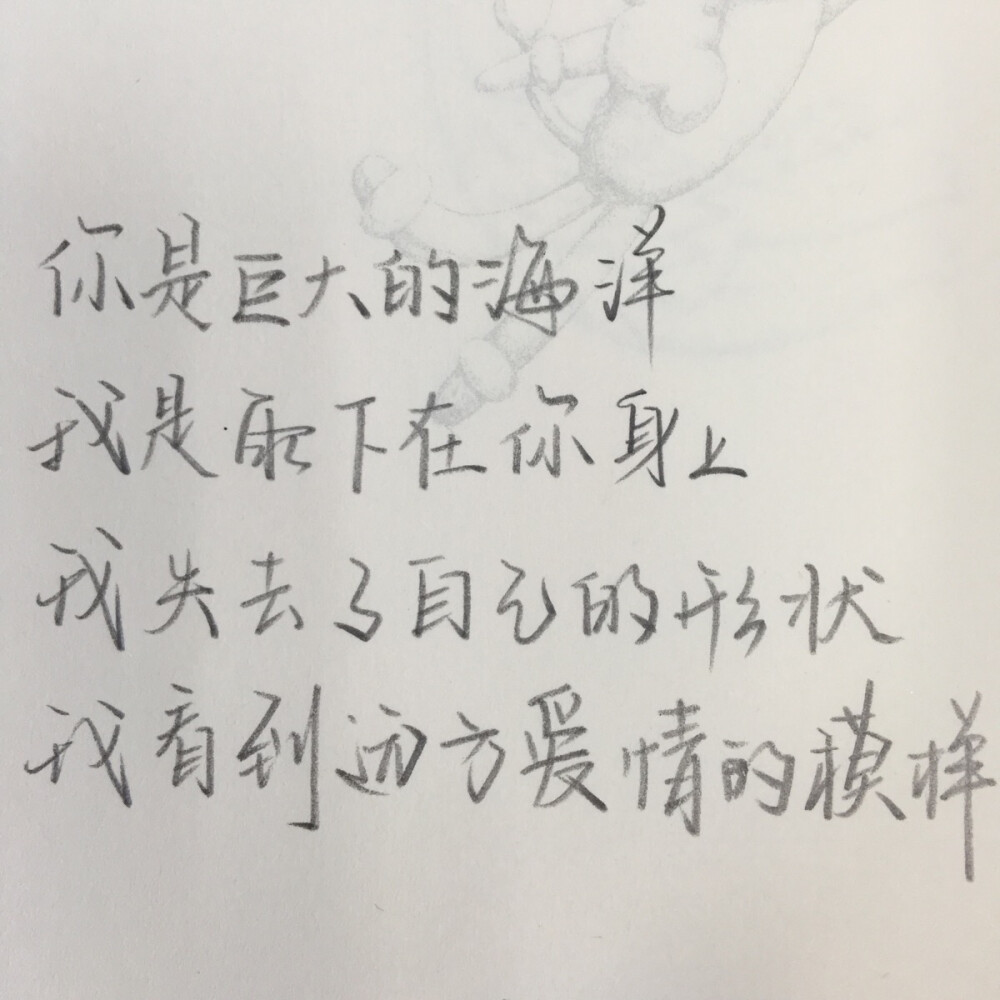 你是巨大的海洋
我是雨下在你身上
我失去了自己的形状
我看到远方爱情的模样